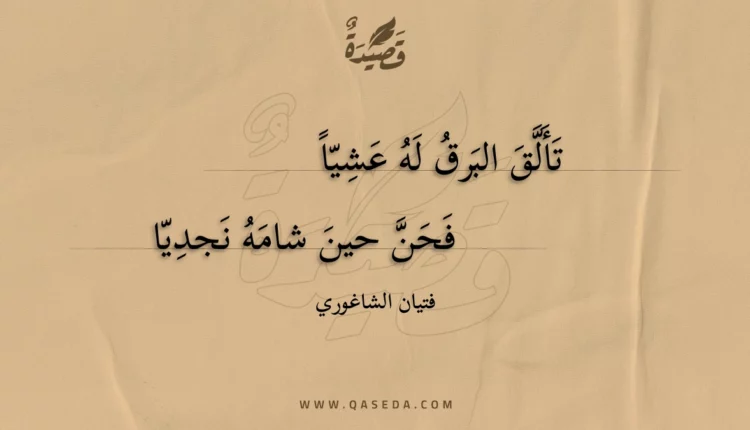 قَصِيدَةٌ
تَأَلَّقَ البَرقُ لَهُ عَشِيّاً
فَحَنَّ حينَ شامَهُ نَجدِيّا
فتيان الشاغوري
WWW.QASEDA.COM